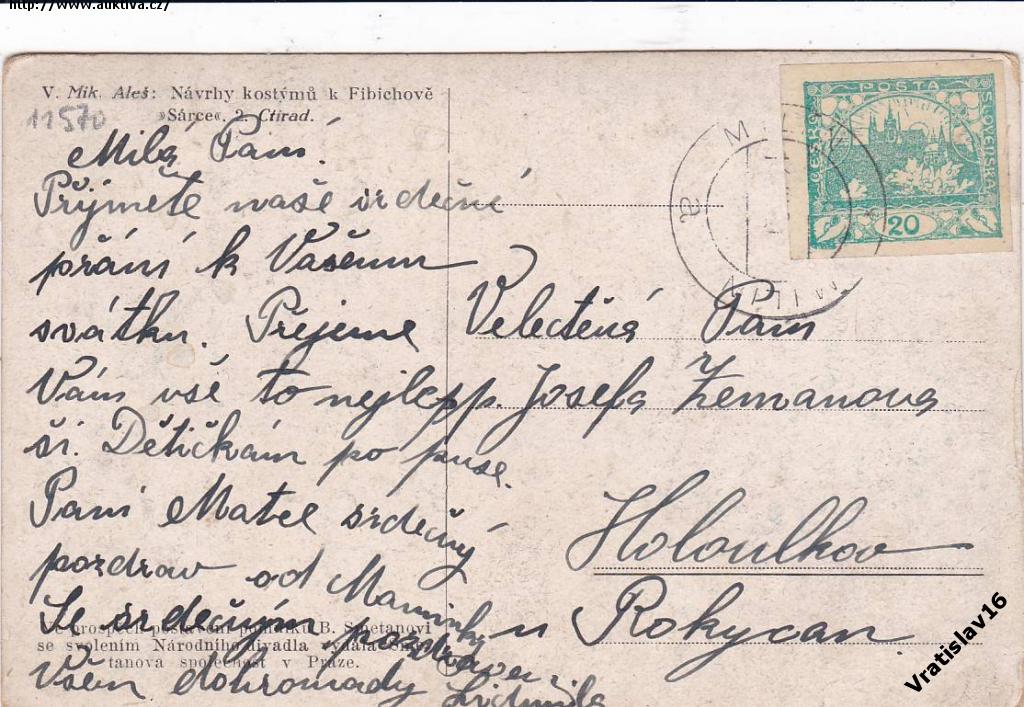 http://www.auktiva.cz/
V. Mik. Aleš: Návrhy kostýmů k Fibichově
»Šárce«. 2. Ctirad.
11570
Milá Paní.
Přijměte naše srdečné
přání k Vašemu
svátku. Přejeme
Vám vše to nejlepp.
ší. Dětičkám po puse.
Paní Matce srdečný
pozdrav od Maminky
Se srdečným pozdravem
Všem dohromady Lidmila
Ve prospěch postavení pomníku B. Smetanovi
se svolením Národního divadla vydala Sme-
tanova společnost v Praze.
POSTA
ČESKO
SLOVENSKÁ
20
Velectěná Paní
Josefa Zemanova
Holoulkov
u Rokycan
Vratislav16